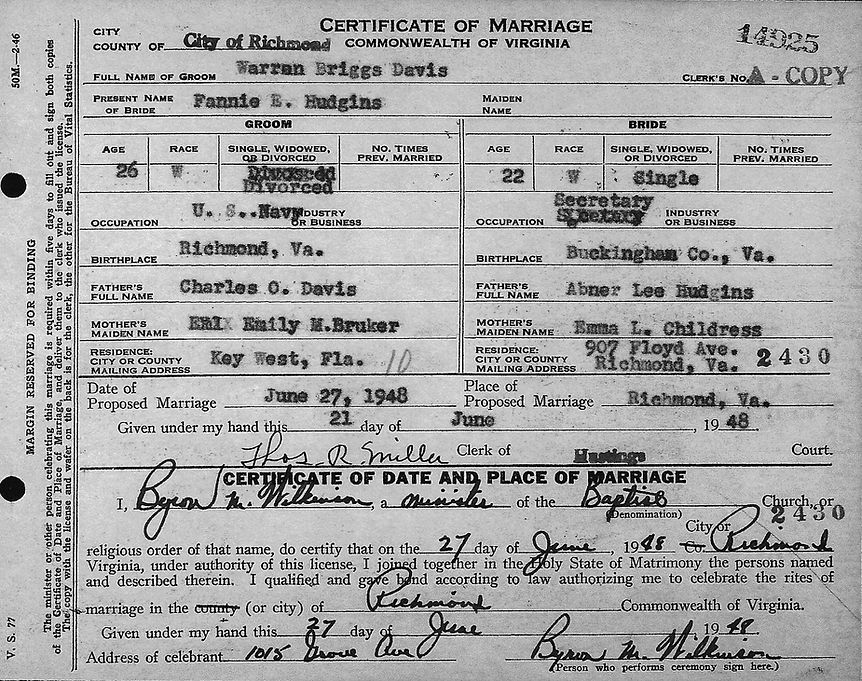 CERTIFICATE OF MARRIAGE
COMMONWEALTH OF VIRGINIA
14925
CITY
COUNTY OF City of Richmond
FULL NAME OF GROOM Warren Briggs Davis CLERK'S No. A - COPY
PRESENT NAME OF BRIDE Fannie E. Hudgins MAIDEN NAME
GROOM BRIDE
AGE RACE SINGLE, WIDOWED, OR DIVORCED NO. TIMES PREV. MARRIED AGE RACE SINGLE, WIDOWED, OR DIVORCED NO. TIMES PREV. MARRIED
26 W Divorced 22 W Single
OCCUPATION U. S. Navy INDUSTRY OR BUSINESS OCCUPATION Secretary INDUSTRY OR BUSINESS
BIRTHPLACE Richmond, Va. BIRTHPLACE Buckingham Co., Va.
FATHER'S FULL NAME Charles O. Davis FATHER'S FULL NAME Abner Lee Hudgins
MOTHER'S MAIDEN NAME Emily M.Bruker MOTHER'S MAIDEN NAME Emma L. Childress
RESIDENCE: CITY OR COUNTY MAILING ADDRESS Key West, Fla. 10 RESIDENCE: CITY OR COUNTY MAILING ADDRESS 907 Floyd Ave. Richmond, Va. 2430
Date of Proposed Marriage June 27, 1948 Place of Proposed Marriage Richmond, Va.
Given under my hand this 21 day of June, 1948
Thos. R. Miller Clerk of Hustings Court.
CERTIFICATE OF DATE AND PLACE OF MARRIAGE
I, Byron M. Wilkinson, a minister of the Baptist Church, or
(Denomination) 2430
City or
religious order of that name, do certify that on the 27 day of June, 1948 Co. Richmond
Virginia, under authority of this license, I joined together in the Holy State of Matrimony the persons named
and described therein. I qualified and gave bond according to law authorizing me to celebrate the rites of
marriage in the county (or city) of Richmond Commonwealth of Virginia.
Given under my hand this 27 day of June 1948.
Address of celebrant 1015 Grove Ave Byron M. Wilkinson
(Person who performs ceremony sign here.)
50M.—2-46
V. S. 77
MARGIN RESERVED FOR BINDING
The minister or other person celebrating this marriage is required within five days to fill out and sign both copies
of the Certificate of Date and Place of Marriage, and deliver them to the clerk who issued the license.
The copy with the license and wafer on the back is for the clerk, the other for the Bureau of Vital Statistics.